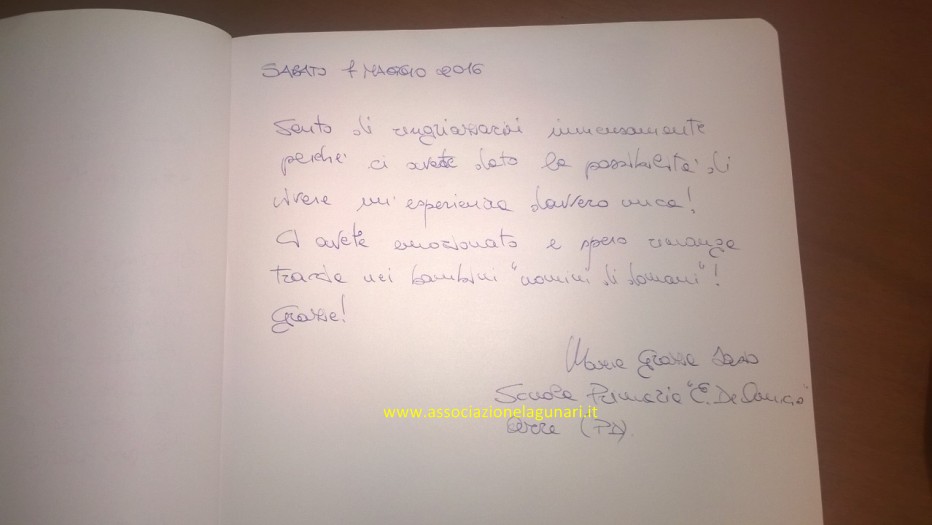 SABATO 7 MAGGIO 2016
Sento di ringraziarvi immensamente
perché ci avete dato la possibilità di
vivere un'esperienza davvero unica!
Ci avete emozionato e spero rimanga
traccia nei bambini "uomini di domani"!
Grazie!
Maria Grazia
Scuola Primaria "E. De Amicis"
www.associazionelagunari.it
(PD)